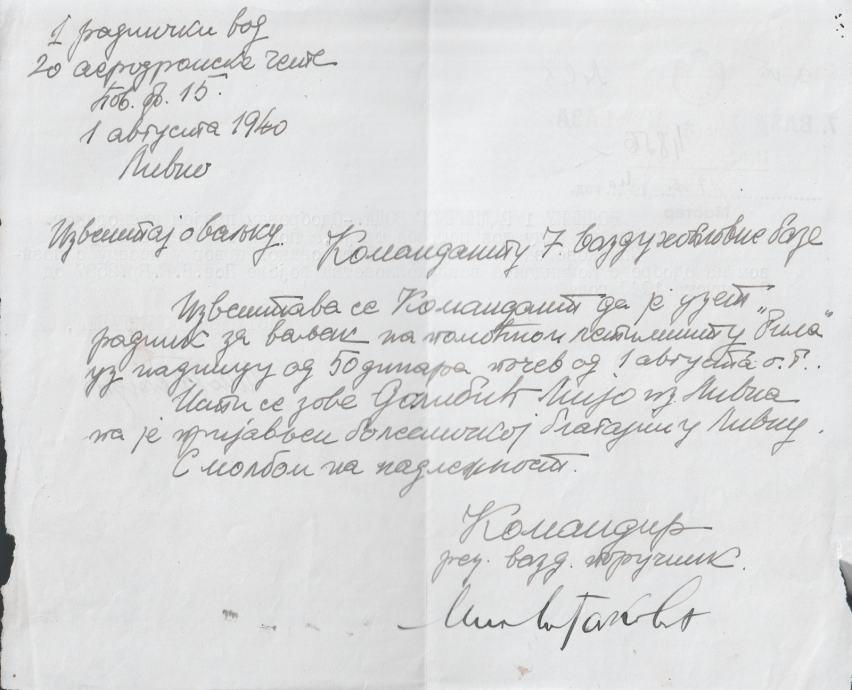 1 раднички вод
20 аеродромске чете
Пов. ф. 15.
1 августа 1940
Ливно
Извештај о ваљку.
Команданту 7 ваздухопловне базе
Извештава се Командант да је узет
радник за ваљак на помоћном летилишту „Била“
уз надницу од 50 динара почев од 1 августа о.г..
Исти се зове Мијо из Ливна
па је пријављен благајни у Ливну.
С молбом на надлежност.
Командир
рез. вазд. поручник.
7. БАЗА
БАЗА
4856